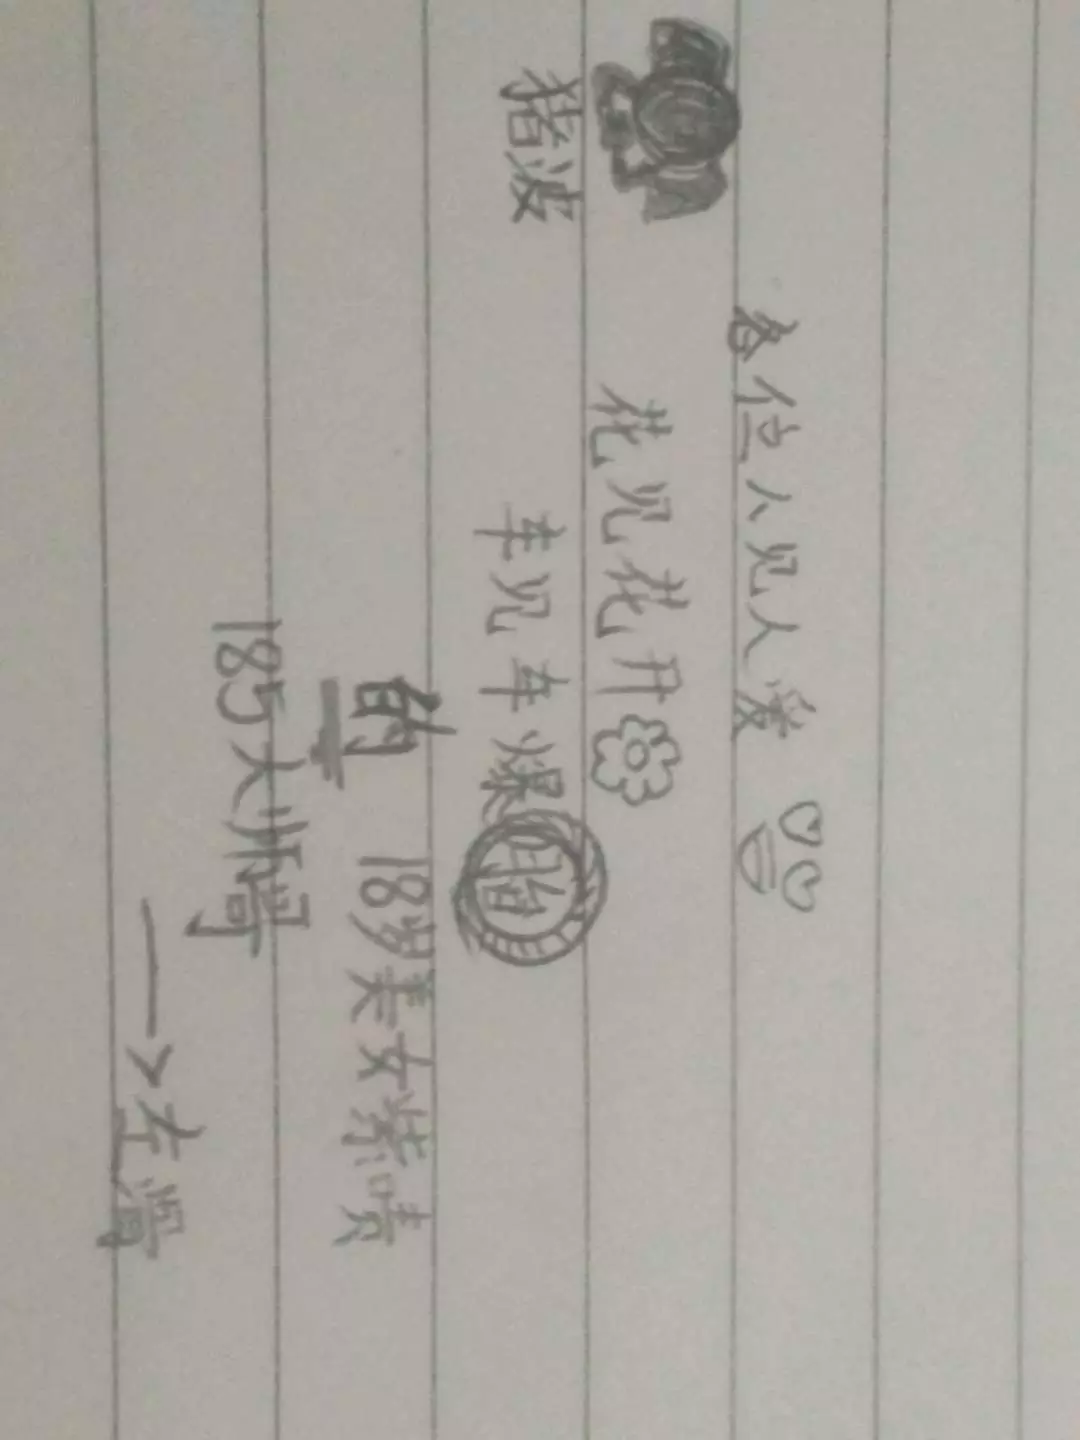 各位人见人爱
猪波
花见花开
车见车爆胎
的
18岁美女紫喷
185大帅哥
→左